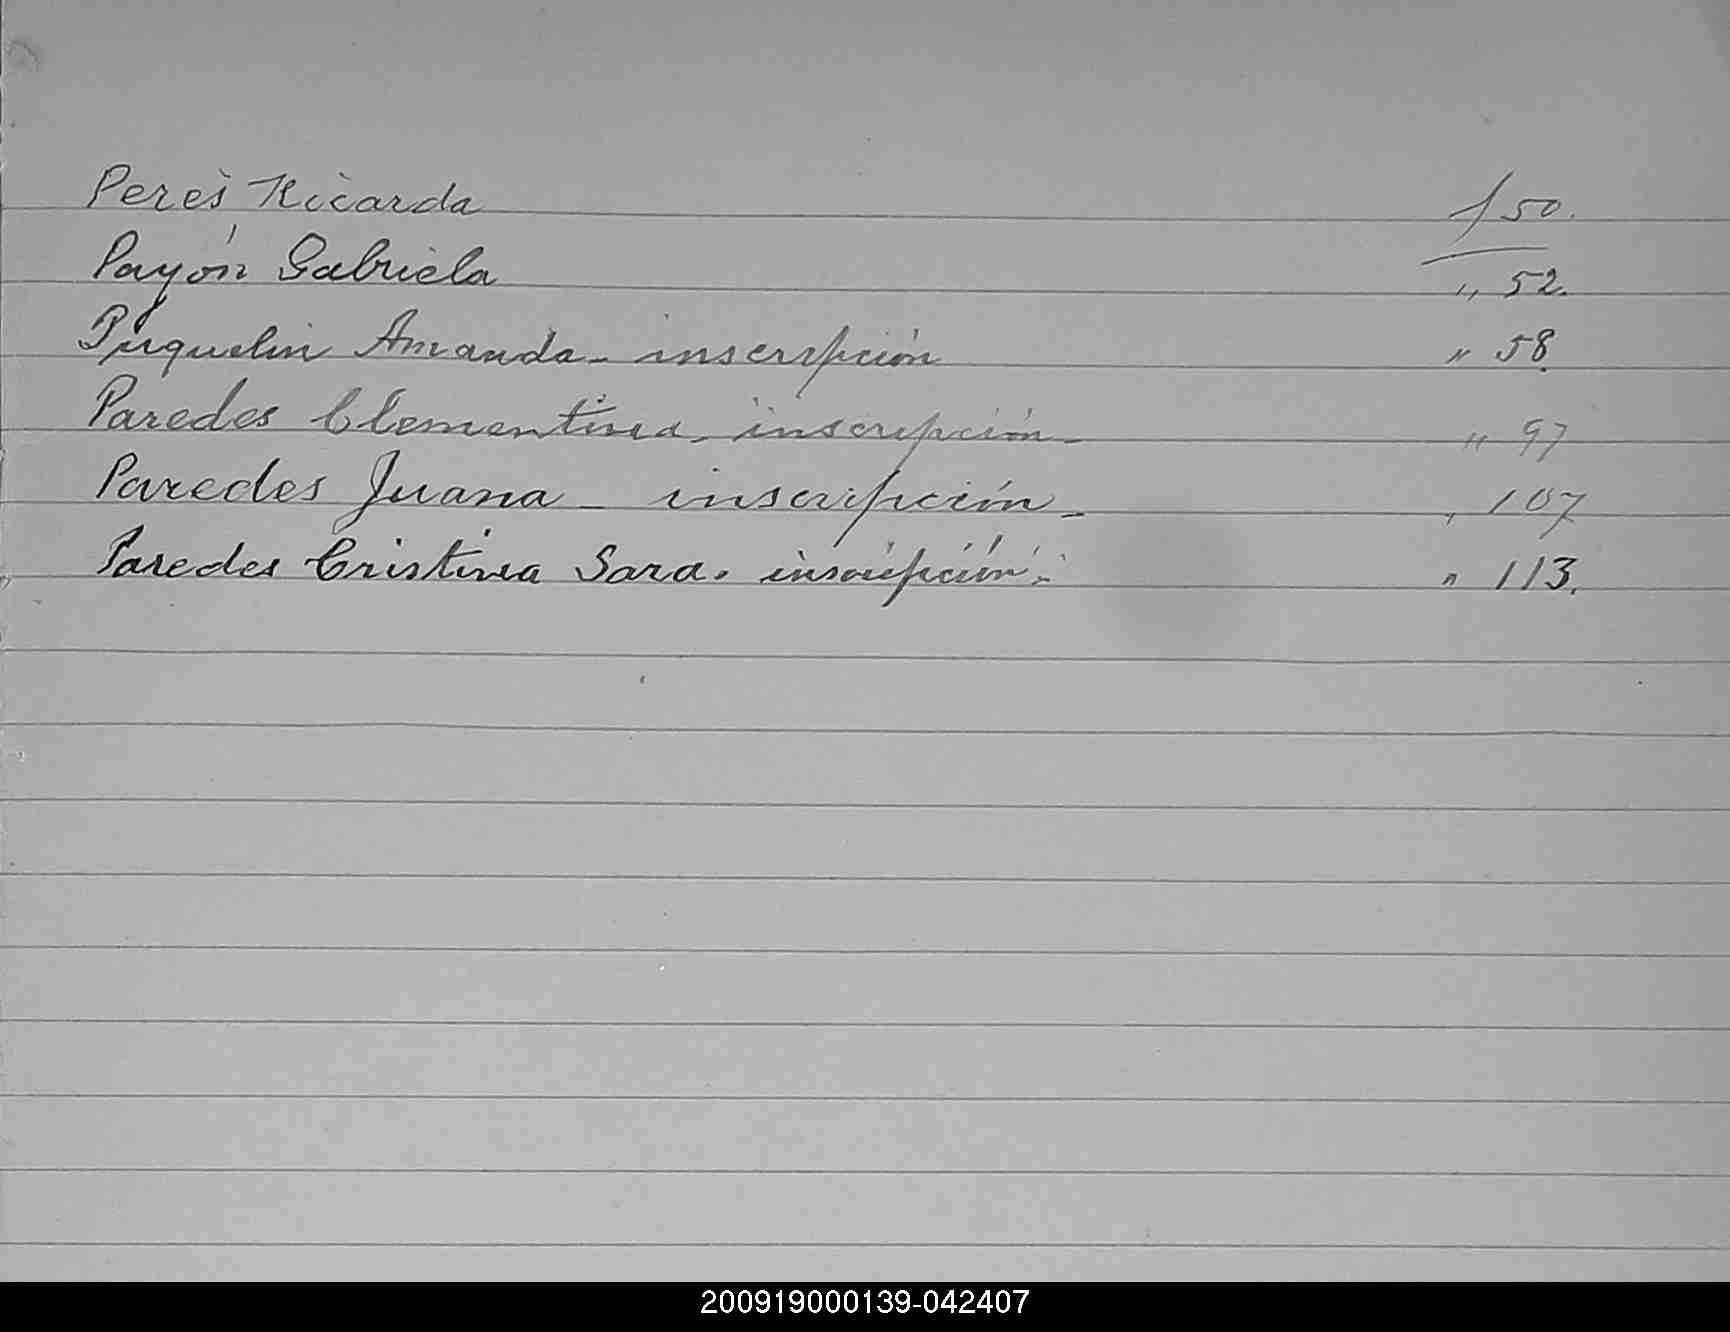 Peres Ricarda f 50.
Payón Gabriela " 52.
Puquelin Amanda - inscripción " 58.
Paredes Clementina - inscripción - " 97
Paredes Juana - inscripción - " 107
Paredes Cristina Sara. inscripción. - " 113.
200919000139-042407